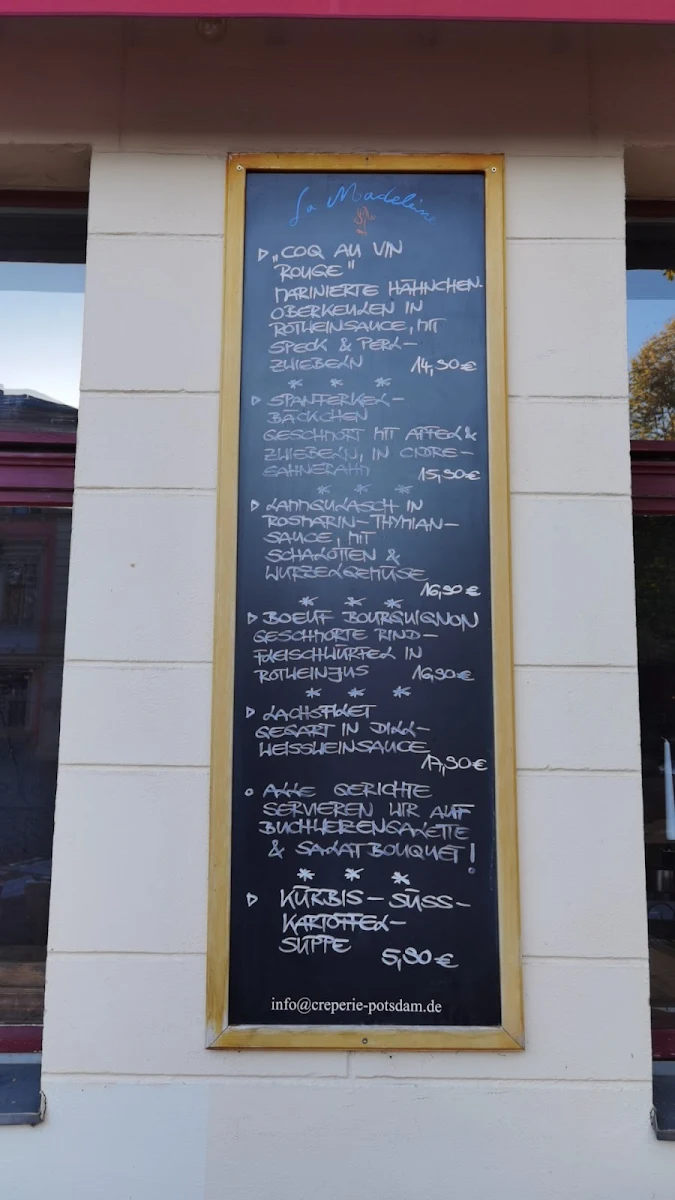 La Madeleine
▷ „COQ AU VIN
ROUGE"
MARINIERTE HÄHNCHEN-
OBERKEULEN IN
ROTWEINSAUCE, MIT
SPECK & PERL-
ZWIEBELN 14,90€
* * *
▷ SPANFERKEL-
BÄCKCHEN
GESCHMORT MIT APFEL &
ZWIEBELN, IN CIDRE-
SAHNERAHM 15,90€
* * *
▷ LAMMGULASCH IN
ROSMARIN-THYMIAN-
SAUCE, MIT
SCHALOTTEN &
WURZELGEMÜSE
16,90€
* * *
▷ BOEUF BOURGUIGNON
GESCHMORTE RIND-
FLEISCHWÜRFEL IN
ROTWEINJUS 16,90€
* * *
▷ LACHSFILET
GEGART IN DILL-
WEISSWEINSAUCE
17,90€
○ ALLE GERICHTE
SERVIEREN WIR AUF
BUCHWEIZENGALETTE
& SALATBOUQUET!
* * *
▷ KÜRBIS-SÜSS-
KARTOFFEL-
SUPPE 5,90€
info@creperie-potsdam.de